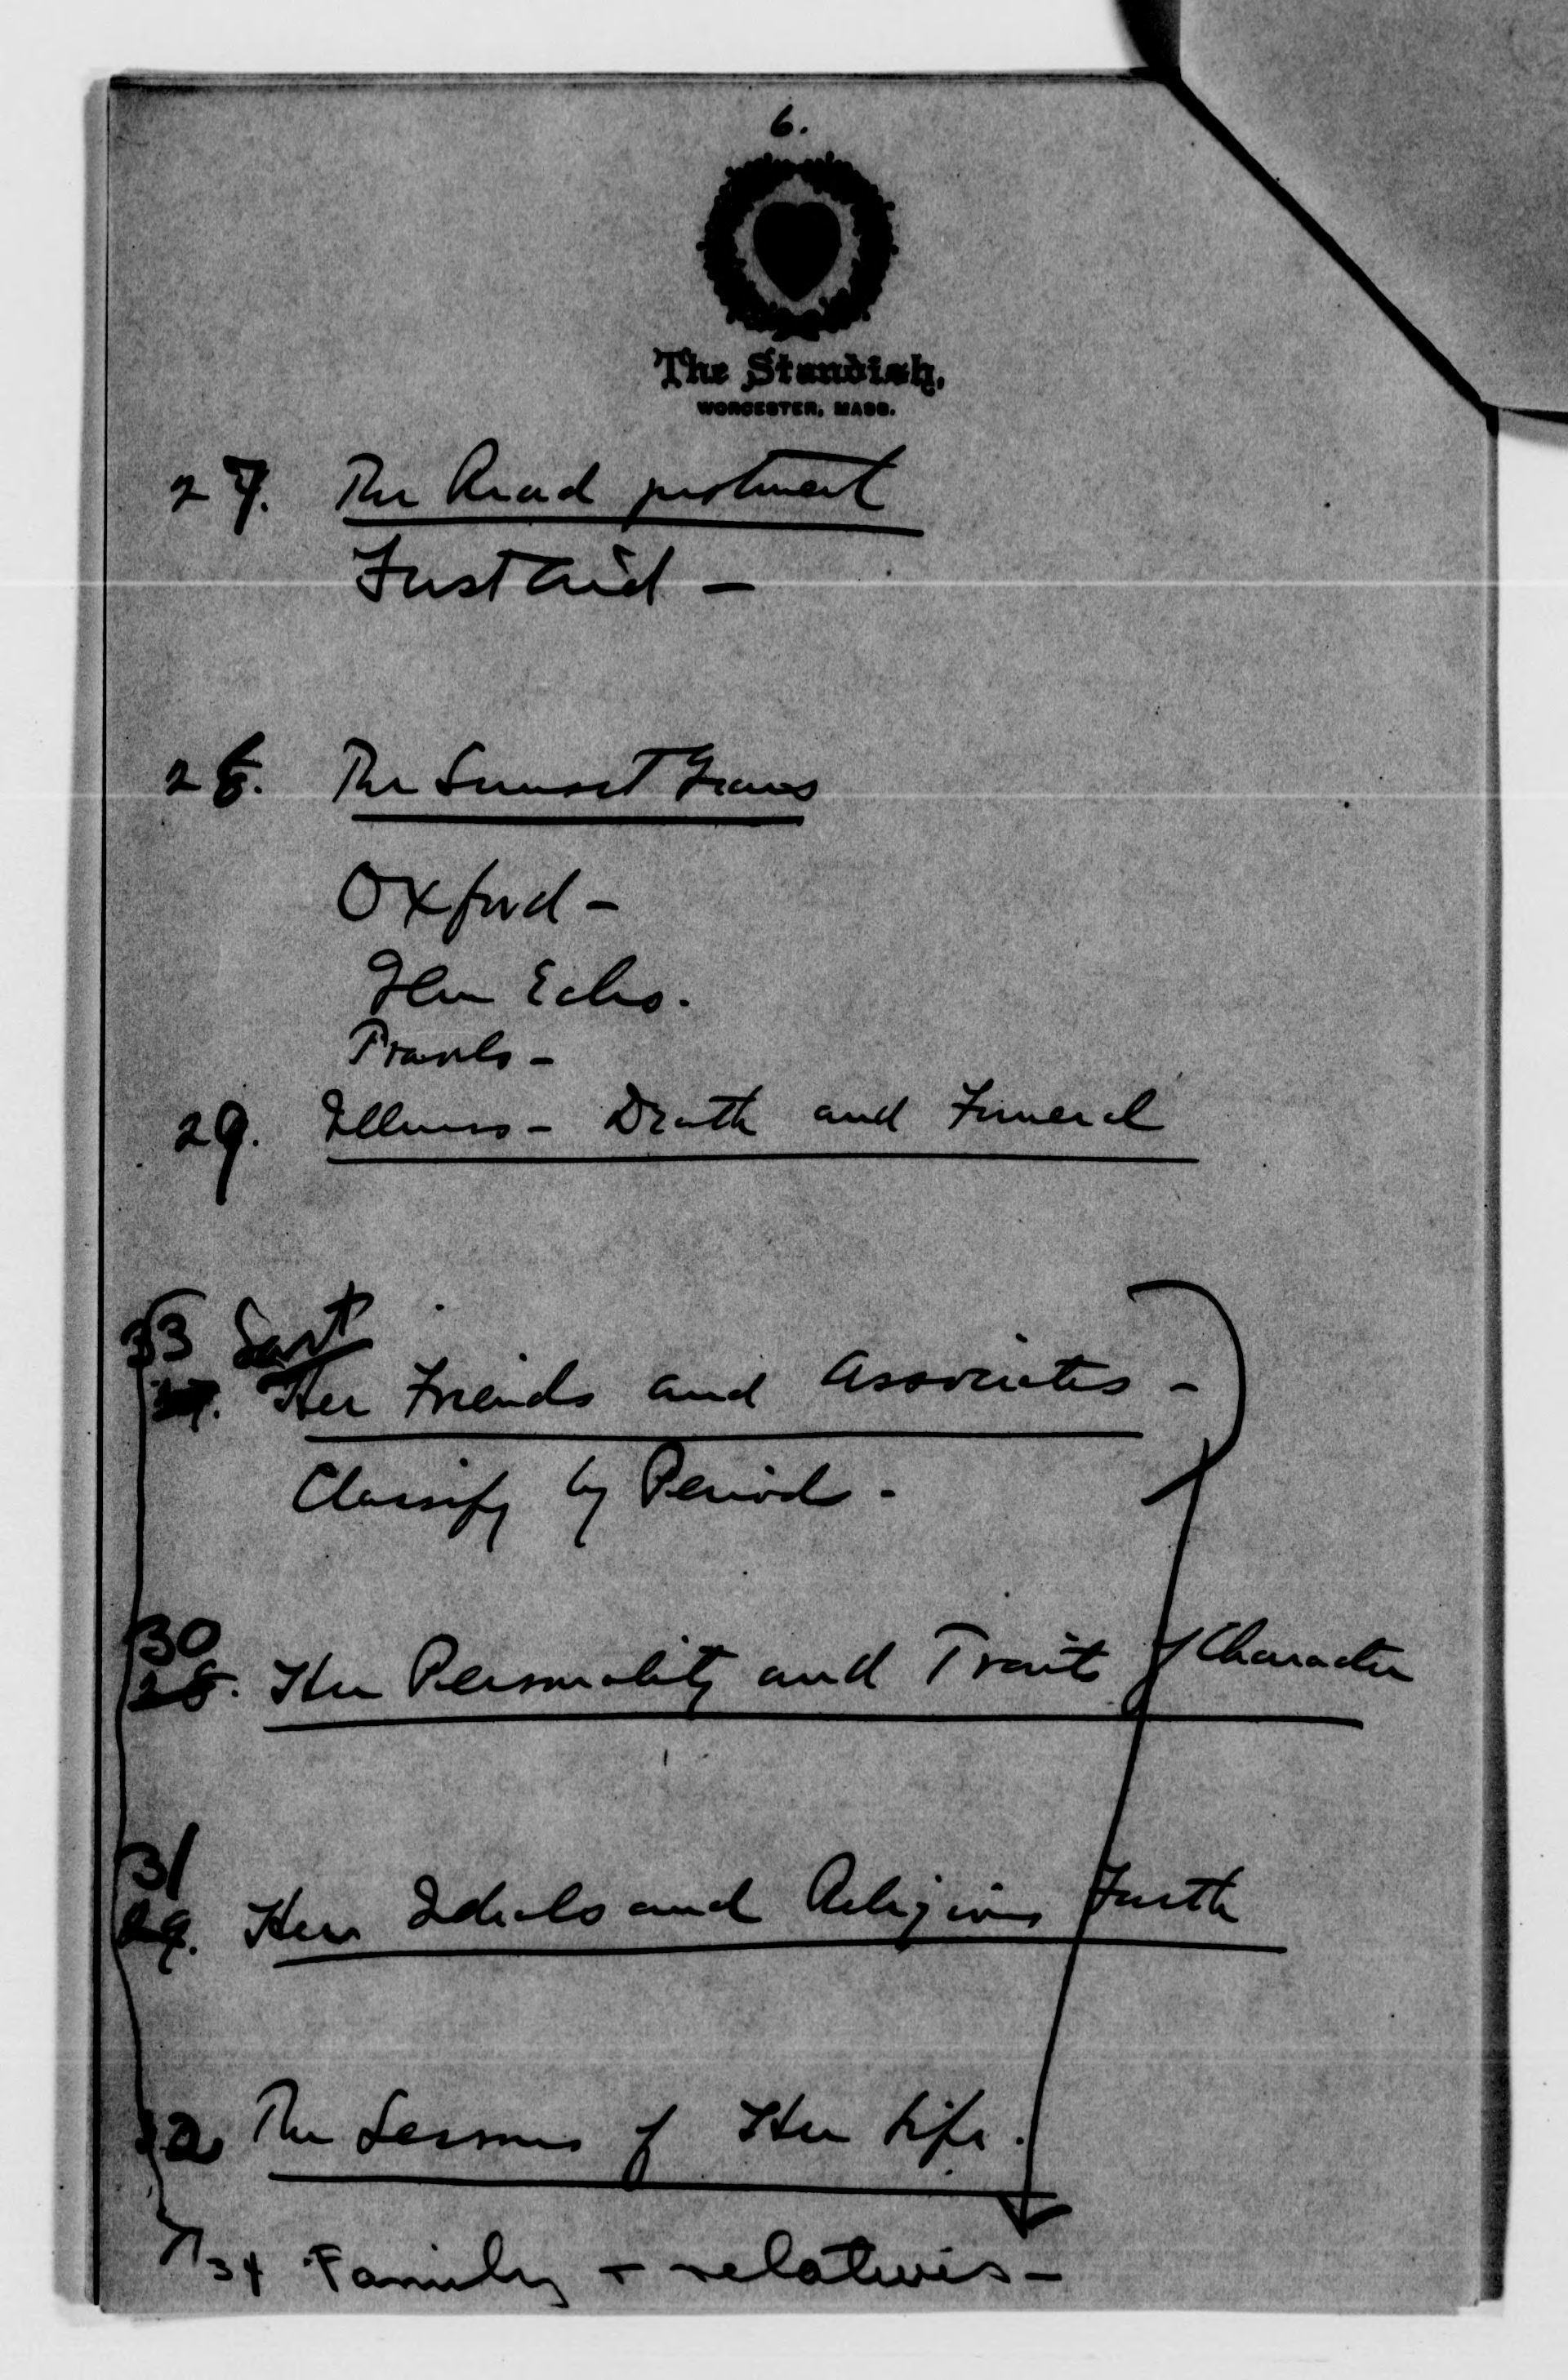 6.
The Standish,
WORCESTER, MASS.
27. The Read
First Aid -
28. The Sunset Years
Oxford -
Glen Echo.
Travels -
29. Illness - Death and Funeral
33 Last
27. Her Friends and Associates -
Classify by Period -
30
28. Her Personality and Traits of Character
31
29. Her Ideals and Religious Faith
32 The Lessons of Her Life.
34 Family + relatives -